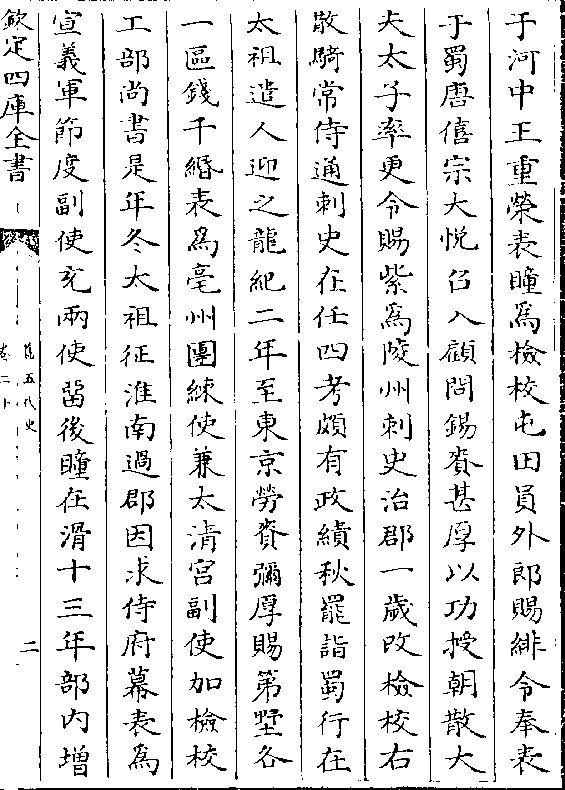 于河中王重榮表瞳爲檢校屯田員外郎賜緋令奉表
于蜀唐僖宗大悅召入顧問錫賚甚厚以功授朝散大
夫太子率更令賜紫爲陵州刺史治郡一歲改檢校右
散騎常侍通刺史在任四考頗有政績秋罷詣蜀行在
太祖遣人迎之龍紀二年至東京勞賚彌厚賜第墅各
一區錢千緡表爲亳州團練使兼太清宮副使加檢校
工部尚書是年冬太祖征淮南過郡因求侍府幕表爲
宣義軍節度副使充兩使留後瞳在滑十三年部内增
欽定四庫全書
舊五代史
卷二十
二